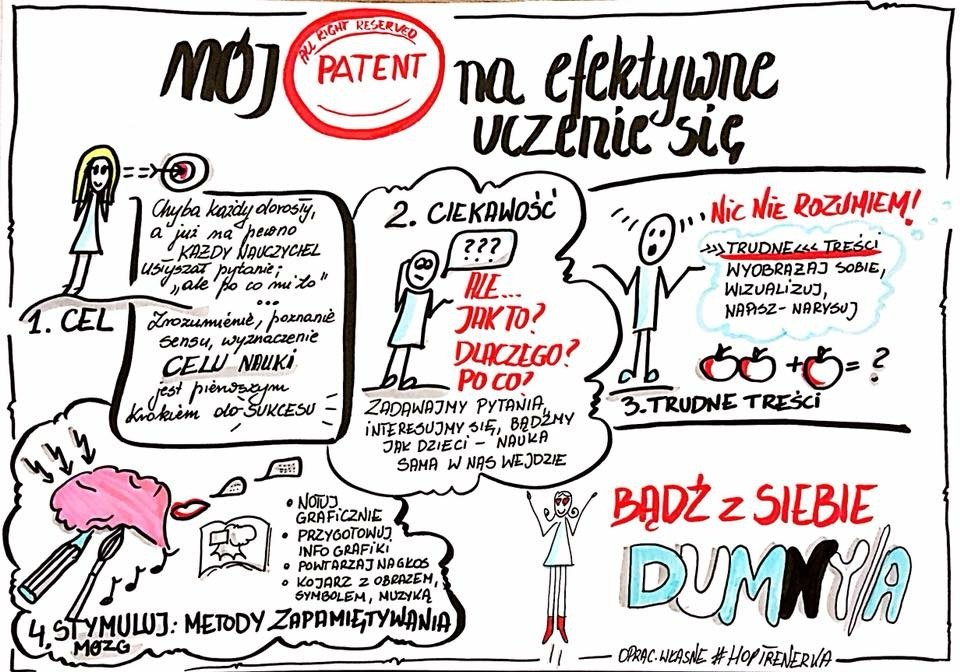 MÓJ
ALL RIGHT RESERVED
PATENT
na efektywne
uczenie się
Chyba każdy dorosły,
a już na pewno
KAŻDY NAUCZYCIEL
usłyszał pytanie;
„ale po co mi to”
...
1. CEL
Zrozumienie, poznanie
sensu, wyznaczenie
CELU NAUKI
jest pierwszym
krokiem do SUKCESU
2. CIEKAWOŚĆ
???
ALE...
JAK TO?
DLACZEGO?
PO CO?
ZADAWAJMY PYTANIA,
INTERESUJMY SIĘ, BĄDŹMY
JAK DZIECI – NAUKA
SAMA W NAS WEJDZIE
NIC NIE ROZUMIEM!
>>> TRUDNE <<< TREŚCI
WYOBRAŻAJ SOBIE,
WIZUALIZUJ,
NAPISZ - NARYSUJ
+ = ?
3. TRUDNE TREŚCI
• NOTUJ
GRAFICZNIE
• PRZYGOTOWUJ
INFOGRAFIKI
• POWTARZAJ NA GŁOS
• KOJARZ Z OBRAZEM,
SYMBOLEM, MUZYKĄ
4. STYMULUJ: METODY ZAPAMIĘTYWANIA
MÓZG
BĄDŹ z SIEBIE
DUMNY/A
OPRAC. WŁASNE #HOPTRENERKA